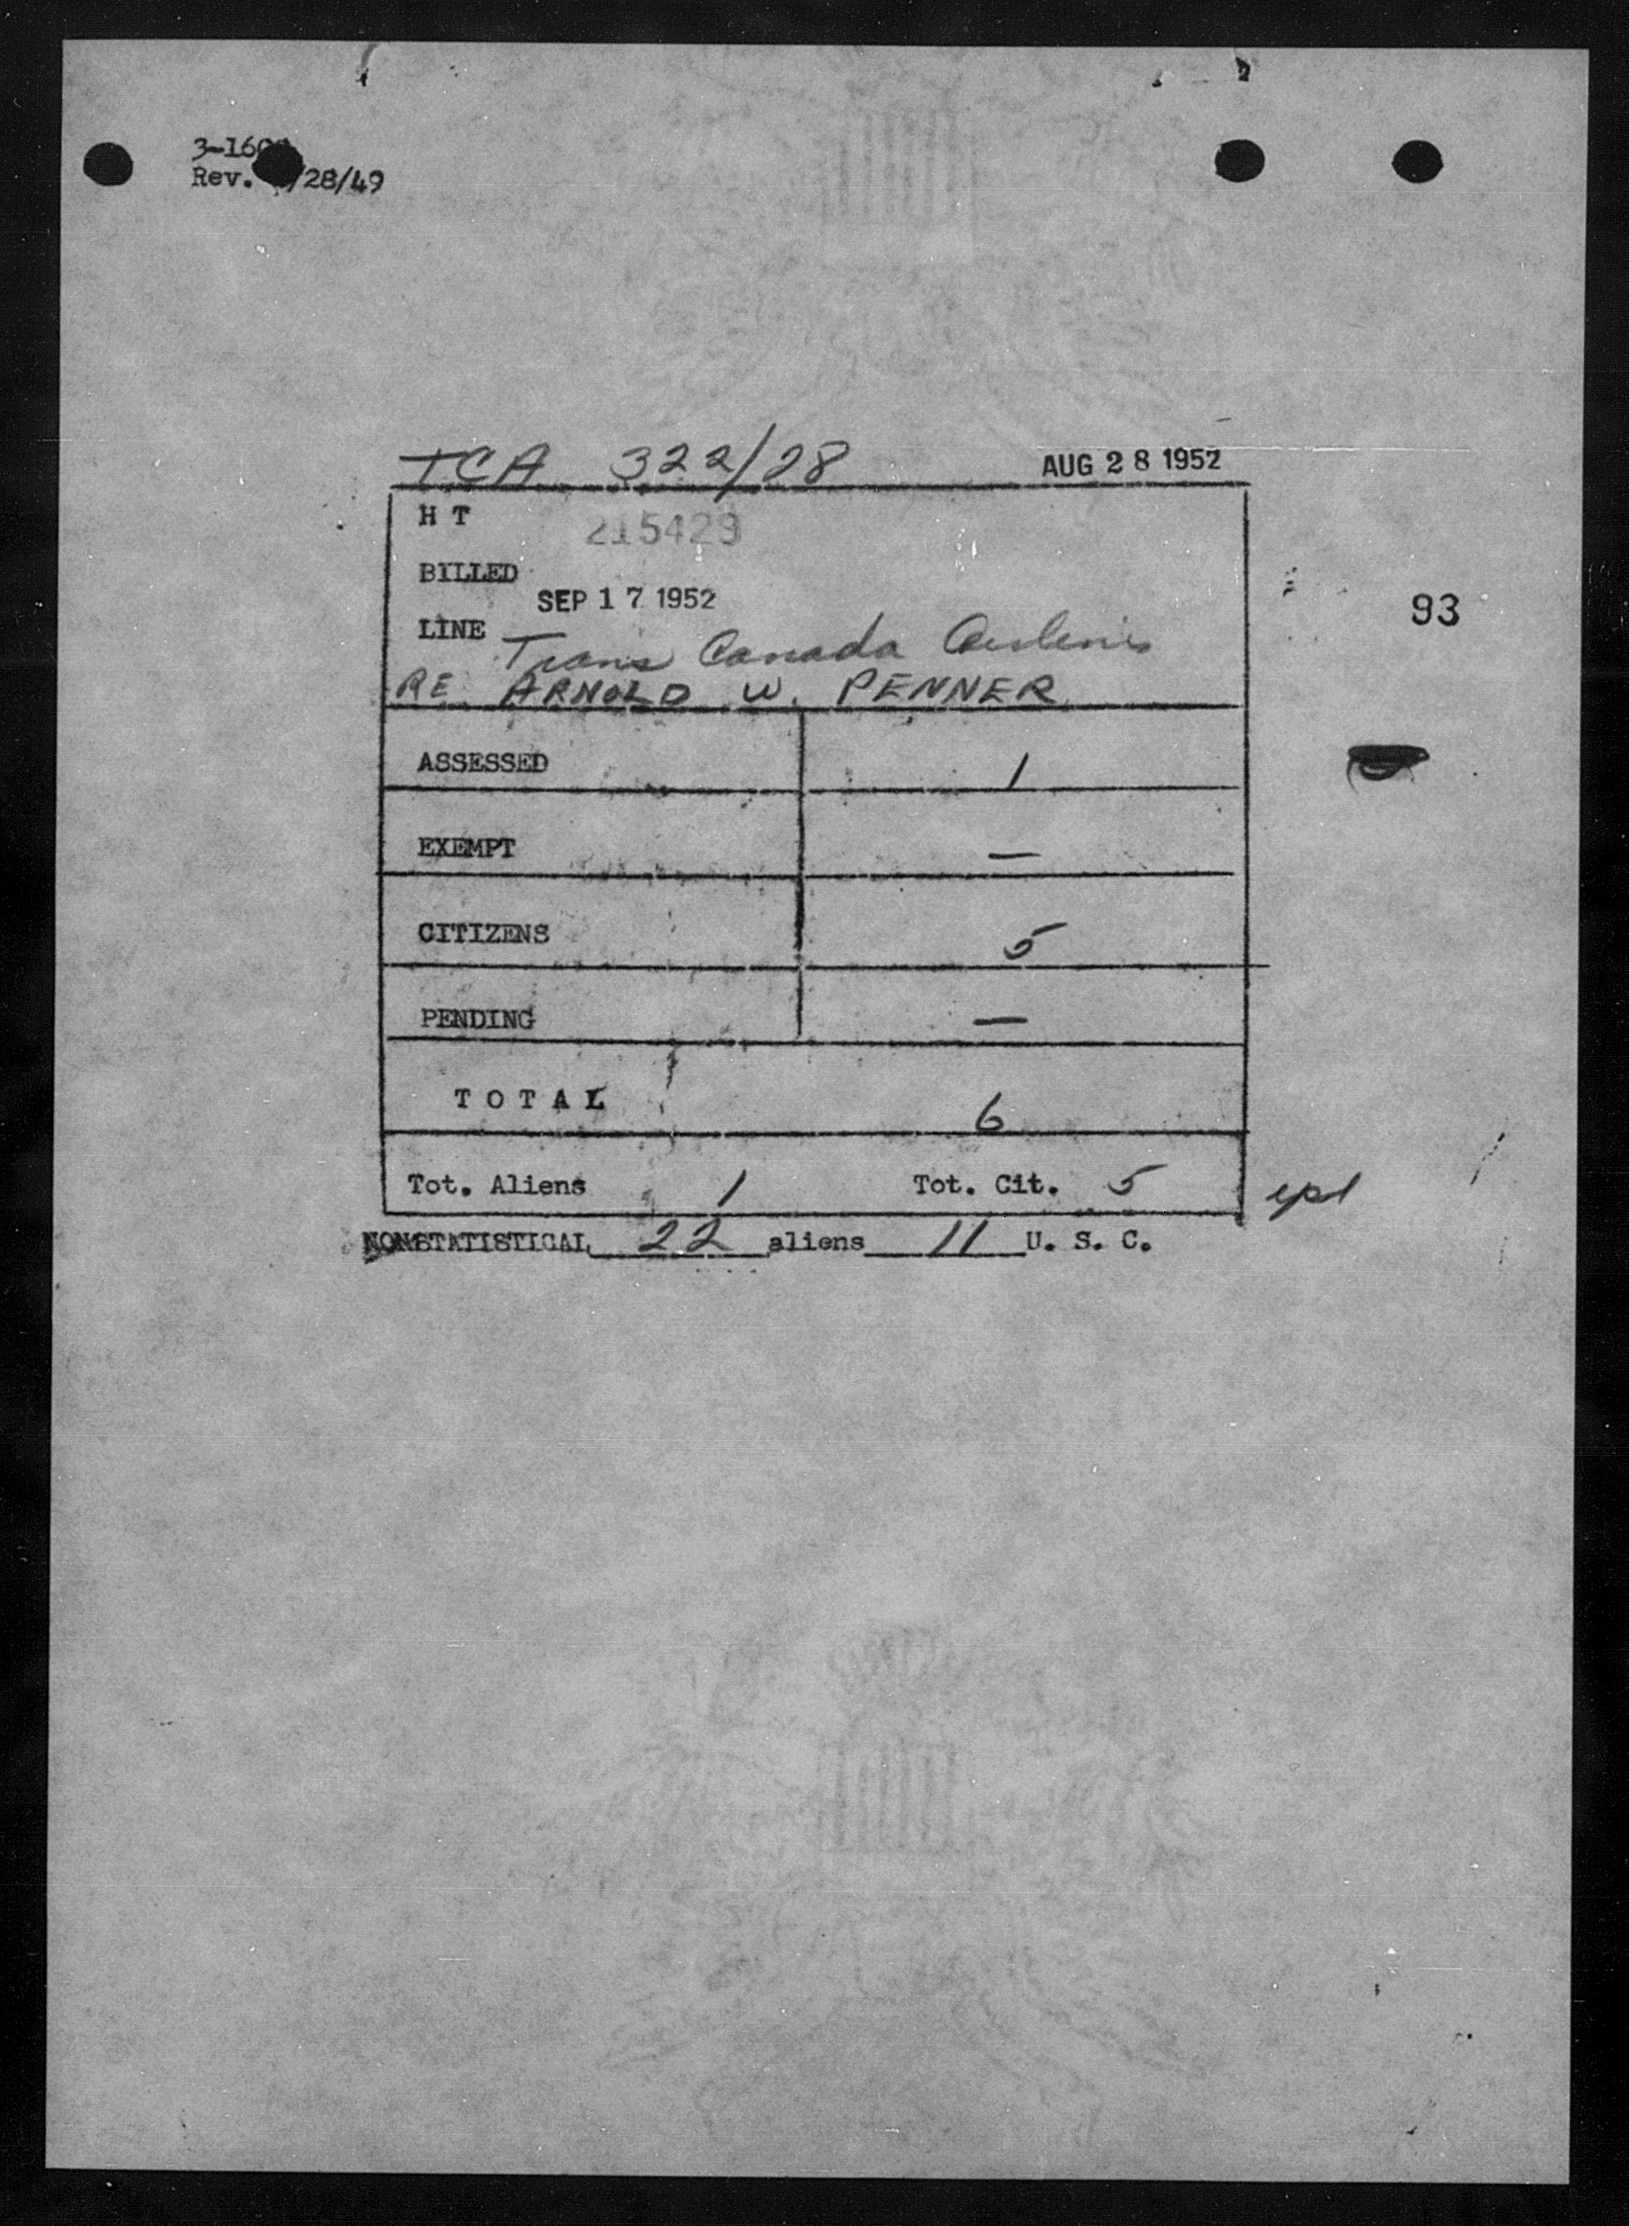 Rev. /28/49
TCA 322/28 AUG 28 1952
H T 215429
BILLED
SEP 17 1952
93
LINE Trans Canada Airlines
RE ARNOLD W. PENNER
ASSESSED 1
EXEMPT —
CITIZENS 5
PENDING —
TOTAL 6
Tot. Aliens 1 Tot. Cit. 5
NONSTATISTICAL 22 aliens 11 U. S. C.